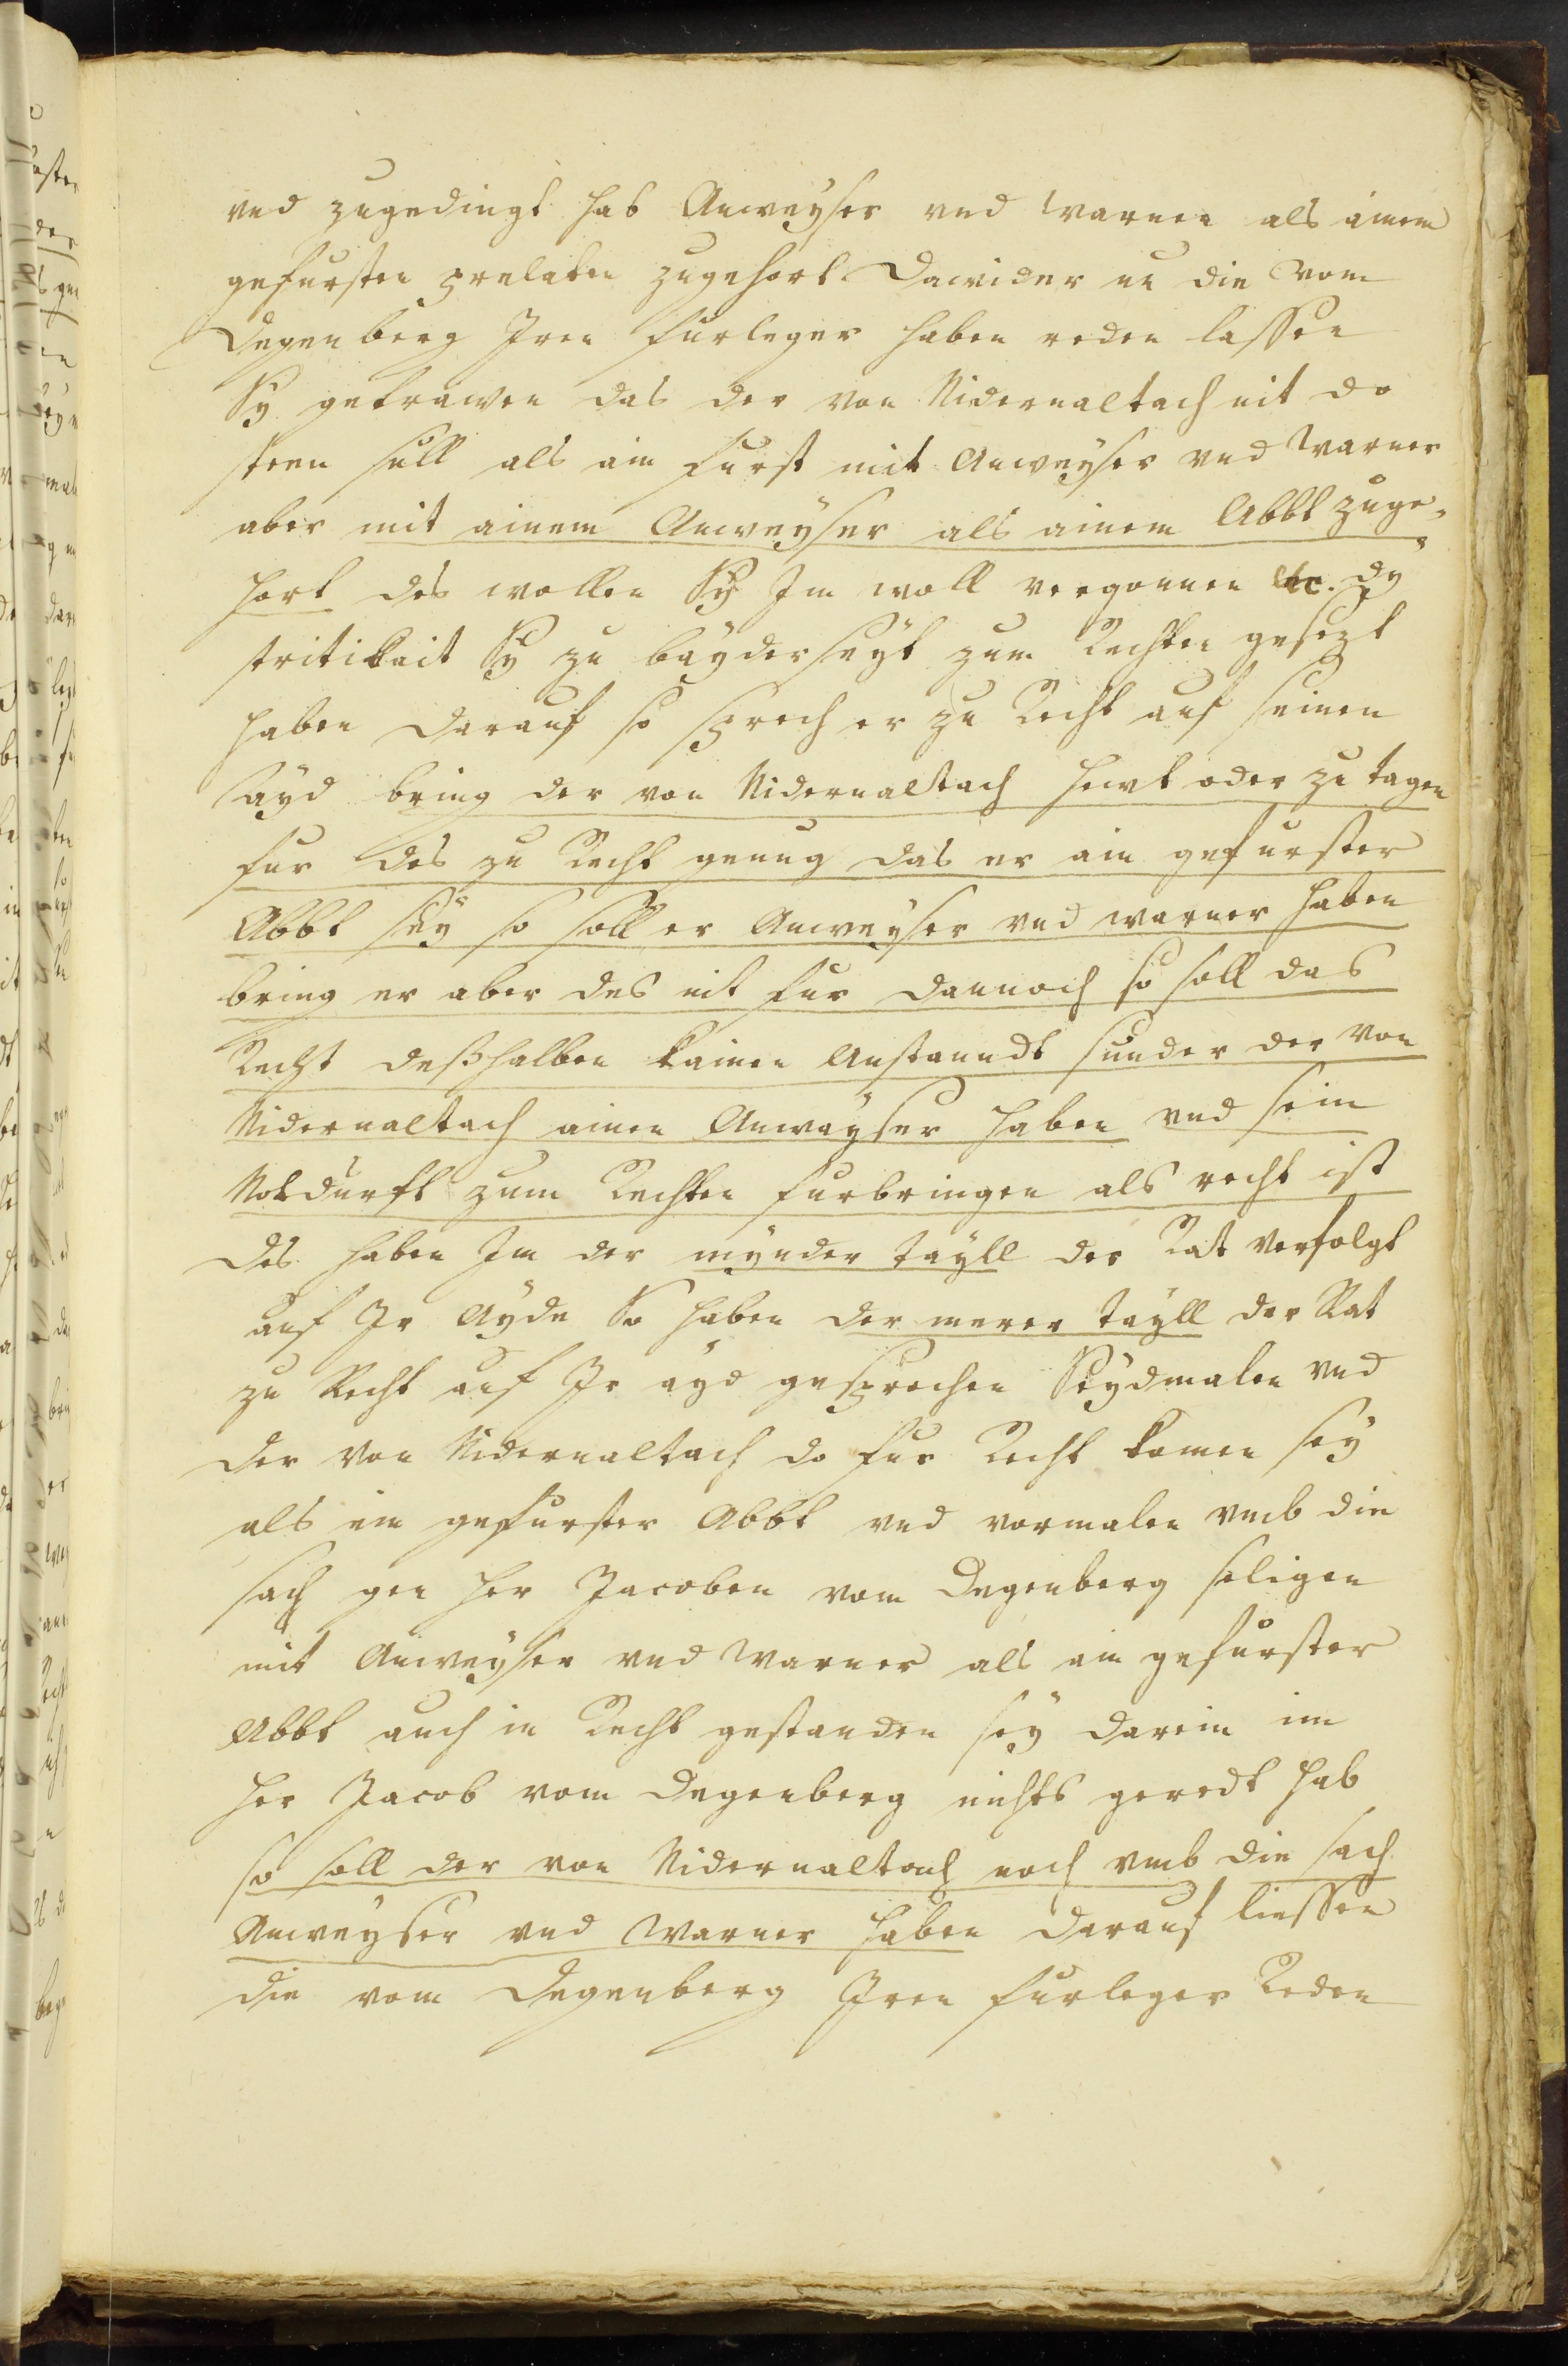 vnd zugedingt hab Anweyser vnd warner als ainem
gefursten prelaten zugehort Dawider nu die vom
Degenberg Jren furleger haben reden lassen
Sy getrawen das der von Nidernaltach nit do
steen süll als ain furst mit Anweyser vnd Warner
aber mit ainem Anweyser als ainem Abbt zuge-
hort des wollen Sy Jm woll vergonnen etc. dy
stritikait Sy zu bayderseyt zum Rechten gesezt
haben darauf so sprech er zu Recht auf seinen
ayd bring der von Nidernaltach hewt oder zu tagen
fur des zu Recht genug das er ain gefurster
Abbt sey so soll er Anweyser vnd warner haben
bring er aber des nit fur dannoch so soll das
Recht deßhalben kainen Anstanndt sunder der von
Nidernaltach ainen Anwayser haben vnd sein
Notdurft zum Rechten furbringen als recht ist
des haben Jm der mynder tayll der Rat verfolgt
auf Jr Ayde So haben der merer tayll der Rat
zu Recht auf Jr ayd gesprochen Seydmalen vnd
der von Nidernaltach do fur Recht komen sey
als ein gefurster Abbt vnd vormalen vmb die
sach gen her Jacoben vom Degenberg seligen
mit Anweyser vnd Warner als ain gefurster
Abbt auch in Recht gestanden sey darein im
her Jacob vom Degenberg nichts geredt hab
so soll der von Nidernaltach noch vmb die sach
Anweyser vnd Warner haben darauf liessen
die vom Degenberg Jren furleger Reden